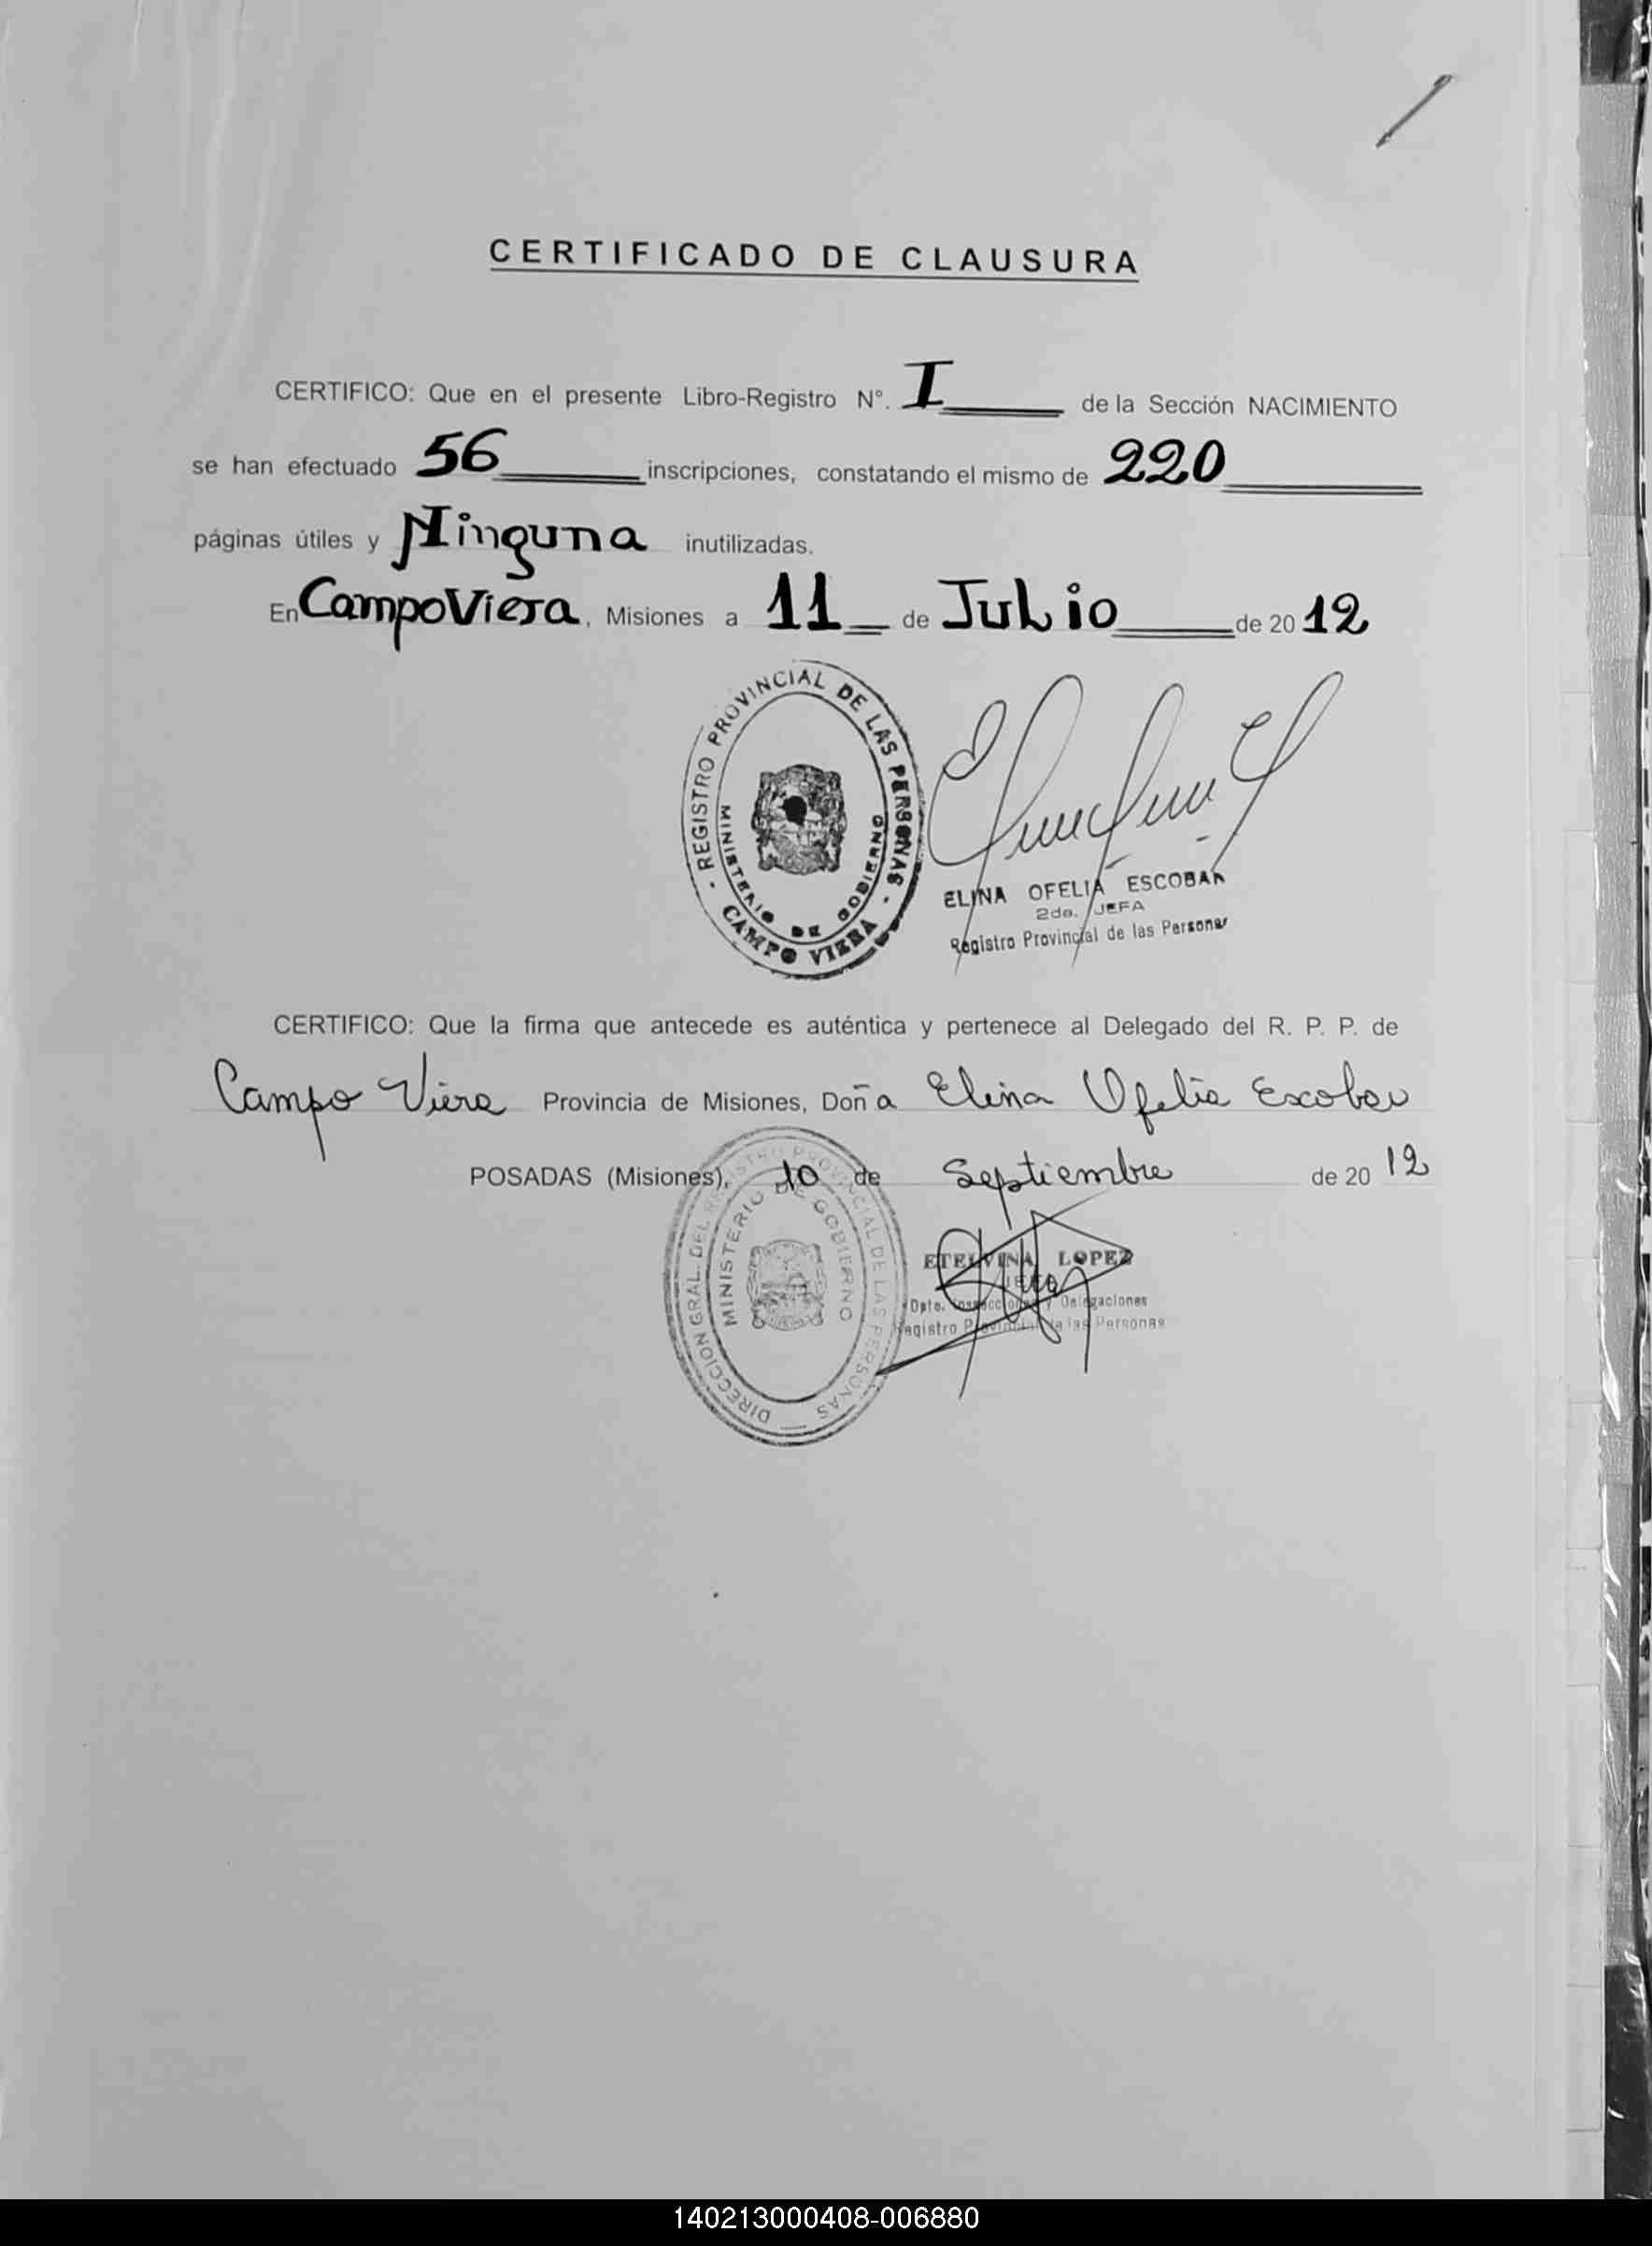 CERTIFICADO DE CLAUSURA
CERTIFICO: Que en el presente Libro-Registro Nº. I de la Sección NACIMIENTO
se han efectuado 56 inscripciones, constatando el mismo de 220
páginas útiles y Ninguna inutilizadas.
En Campo Viera, Misiones a 11 de Julio de 2012
- REGISTRO PROVINCIAL DE LAS PERSONAS -
CAMPO VIERA
MINISTERIO DE GOBIERNO
ELINA OFELIA ESCOBAR
2da. JEFA
Registro Provincial de las Personas
CERTIFICO: Que la firma que antecede es auténtica y pertenece al Delegado del R. P. P. de
Campo Viera Provincia de Misiones, Doña Elina Ofelia Escobar
POSADAS (Misiones), 10 de Septiembre de 2012
DIRECCION GRAL. DEL REGISTRO PROVINCIAL DE LAS PERSONAS
MINISTERIO DE GOBIERNO
ETELVINA LOPEZ
JEFA
Dpto. Inspecciones y Delegaciones
Registro Provincial de las Personas
140213000408-006880